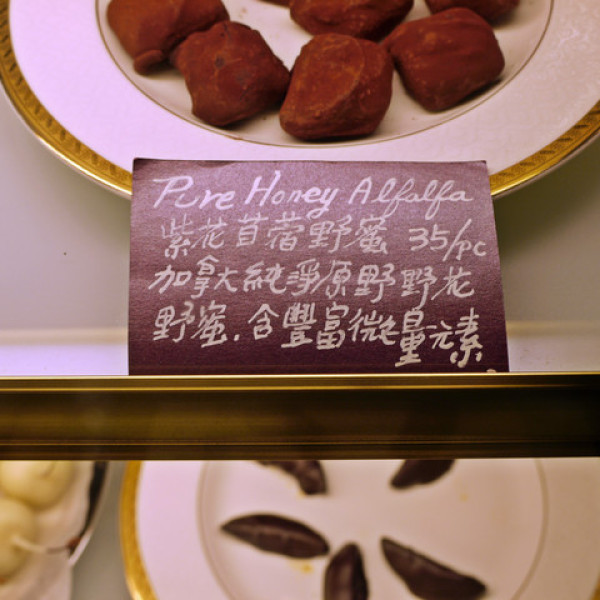 Pure Honey Alfalfa
紫花苜蓿野蜜 35/pc
加拿大純淨原野野花
野蜜.含豐富微量元素.